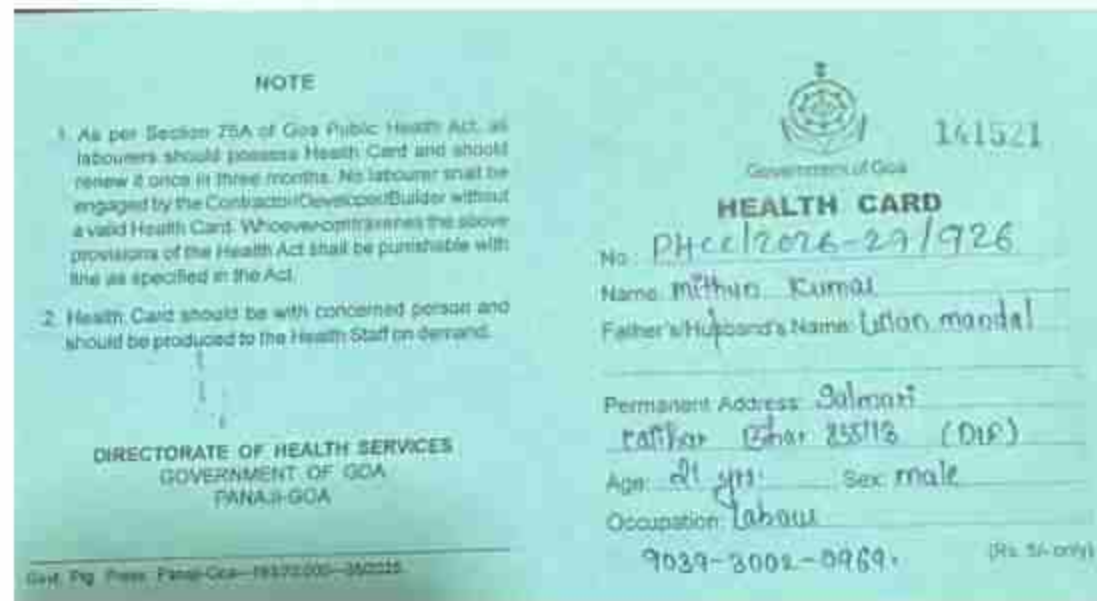 NOTE
1. As per Section 75A of Goa Public Health Act, all
labourers should possess Health Card and should
renew it once in three months. No labourer shall be
engaged by the Contractor/Developer/Builder without
a valid Health Card. Whoever contravenes the above
provisions of the Health Act shall be punishable with
fine as specified in the Act.
2. Health Card should be with concerned person and
should be produced to the Health Staff on demand.
DIRECTORATE OF HEALTH SERVICES
GOVERNMENT OF GOA
PANAJI-GOA
Govt. Ptg. Press, Panaji-Goa
141521
Government of Goa
HEALTH CARD
No.: PHCC/2026-27/926
Name: Mithun Kumar
Father's/Husband's Name: mandal
Permanent Address: Salmari
Katihar Bihar 855113
Age: 21 yrs. Sex: male
Occupation: Labour
9039-3002-0969.
(Rs. 5/- only)